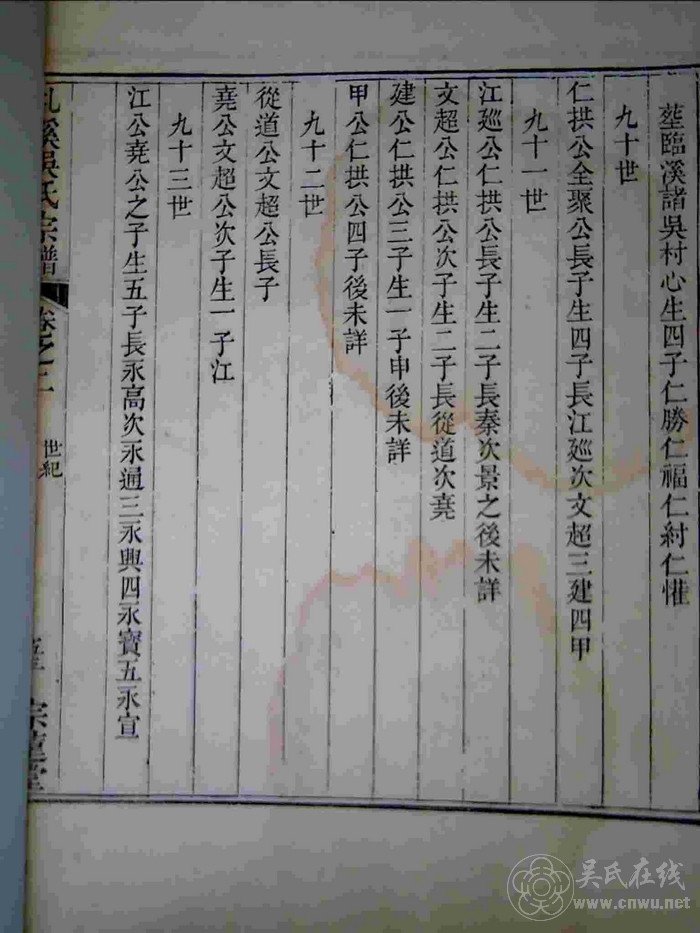 塟臨溪諸吳村心生四子仁勝仁福仁紂仁懽
九十世
仁拱公全聚公長子生四子長江廵次文超三建四甲
九十一世
江廵公仁拱公長子生二子長秦次景之後未詳
文超公仁拱公次子生二子長從道次堯
建公仁拱公三子生一子申後未詳
甲公仁拱公四子後未詳
九十二世
從道公文超公長子
堯公文超公次子生一子江
九十三世
江公堯公之子生五子長永高次永通三永興四永寶五永宣
溪吳氏宗譜 卷之二 世紀
吴氏在线
www.cnwu.net